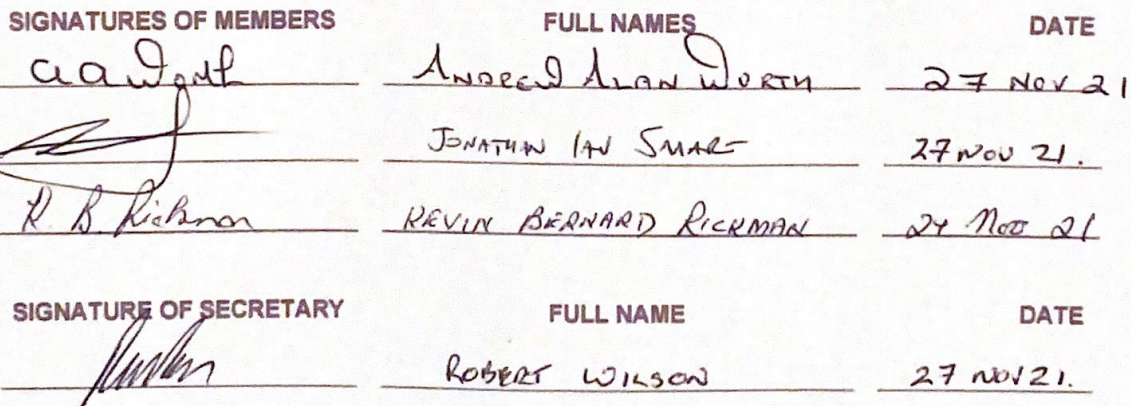 SIGNATURES OF MEMBERS FULL NAMES DATE
a a Worth ANDREW ALAN WORTH 27 NOV 21
JONATHAN IAN SMART 27 NOV 21.
K. B. Rickman KEVIN BERNARD RICKMAN 27 Nov 21
SIGNATURE OF SECRETARY FULL NAME DATE
ROBERT WILSON 27 NOV 21.